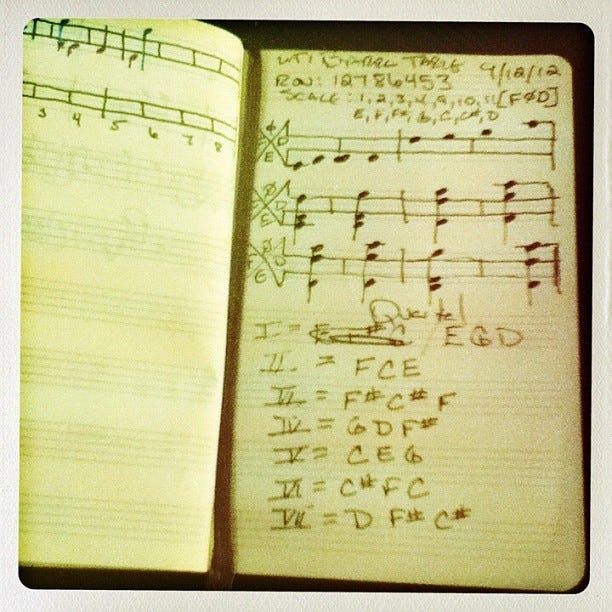 3 4 5 6 7 8
TABLE 9/12/12
ROW: 12786453
SCALE: 1, 2, 3, 4, 9, 10, 11 [FØD]
E, F, F#, G, C, C#, D
Quartal
I = E G D
II = F C E
III = F# C# F
IV = G D F#
V = C E G
VI = C# F C
VII = D F# C#